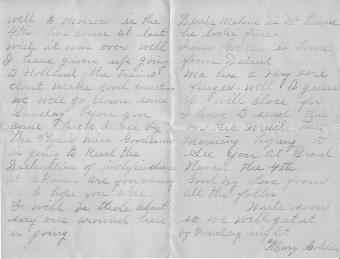 well to morrow is the
4th has come at last
wish it was over. Well
I have given up going
to Holland the trains
dont make good connection
we will go there some
Sunday before you
come I see by
the Miss
is going to Read the
Declaration of
at G Haven are you coming
I hope you will
I will be there about
every one around here
is going
Denis Malone is
he looks fine.
is home
from Detroit
Ma has a very sore
finger, well I guess
I will close for
I have to send this
on the this
morning hoping to
see you at Grand
Haven the 4th
Good by love from
all the folks
Write soon
so we will get it
by Friday night
Mary